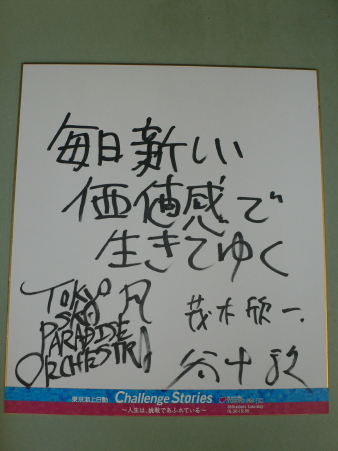 毎日新しい
価値感で
生きてゆく
TOKYO
SKA
PARADISE
ORCHESTRA
茂木欣一.
谷中敦
東京海上日動 Challenge Stories
〜人生は、挑戦であふれている〜